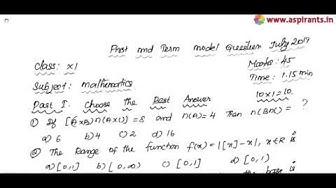 www.aspirants.in
First mid Term model Question July 2017
Class: XI
Marks: 45
Subject: mathematics
Time: 1.15 min
Part I Choose the Best Answer
10x1=10.
① If n(BXC)=8 and n(A)=4 then n(BXC)= ?
a) 6 b) 4 c) 2 d) 16
② The Range of the function f(x)=|[x]-x|, x∈R is
a) [0,1] b) [0,∞) c) [0,1] d) (0,1)